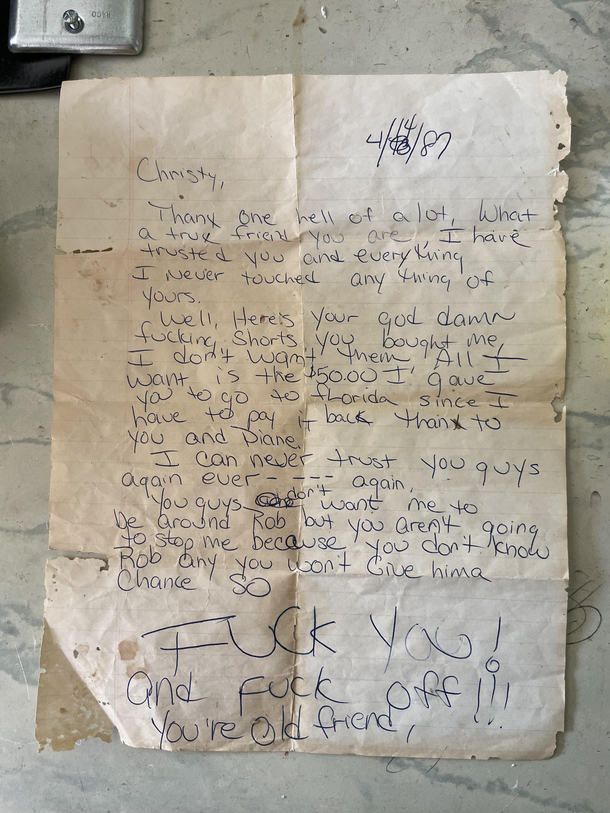 4/14/87
Christy,
Thanx one hell of a lot, What
a true friend you are, I have
trusted you and everything
I never touched any thing of
yours.
Well, Here's your god damn
fucking shorts you bought me,
I don't want them All I
want is the $50.00 I gave
you to go to florida since I
have to pay it back thanx to
you and Diane.
I can never trust you guys
again ever - - --- again.
You guys don't want me to
be around Rob but you aren't going
to stop me because you don't know
Rob any you won't Give him a
Chance SO
FUCK YOU!
and FUCK off!!!
You're Old friend,